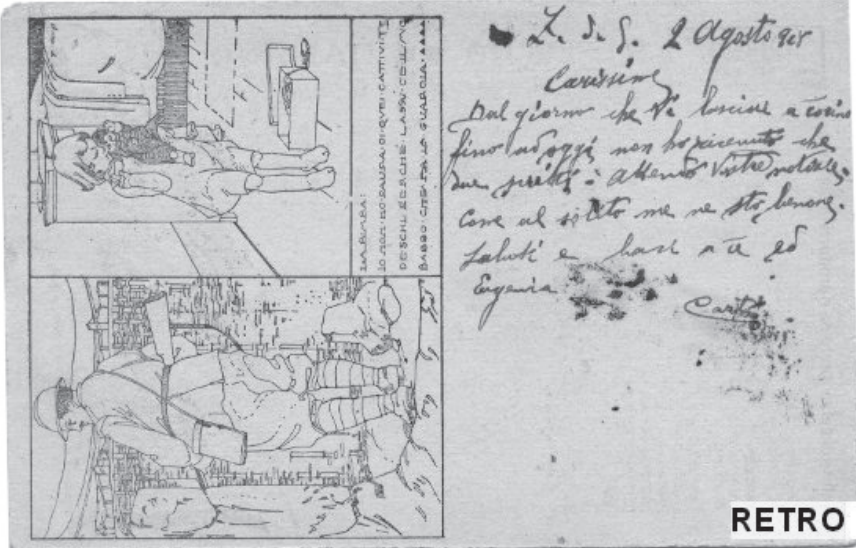 LA BIMBA:
IO NON HO PAURA DI QUEI CATTIVI TE
DESCHI PERCHÈ LASSÙ C'È IL MIO
BABBO CHE FA LA GUARDIA
Z. d. G. 2 Agosto 918
Carissima
Dal giorno che Vi lasciai a
fino ad oggi non ho ricevuto che
due Attendo Vostre notizie.
Come al solito me ne sto benone.
Saluti e baci a te ed
Eugenia
Carlo
RETRO